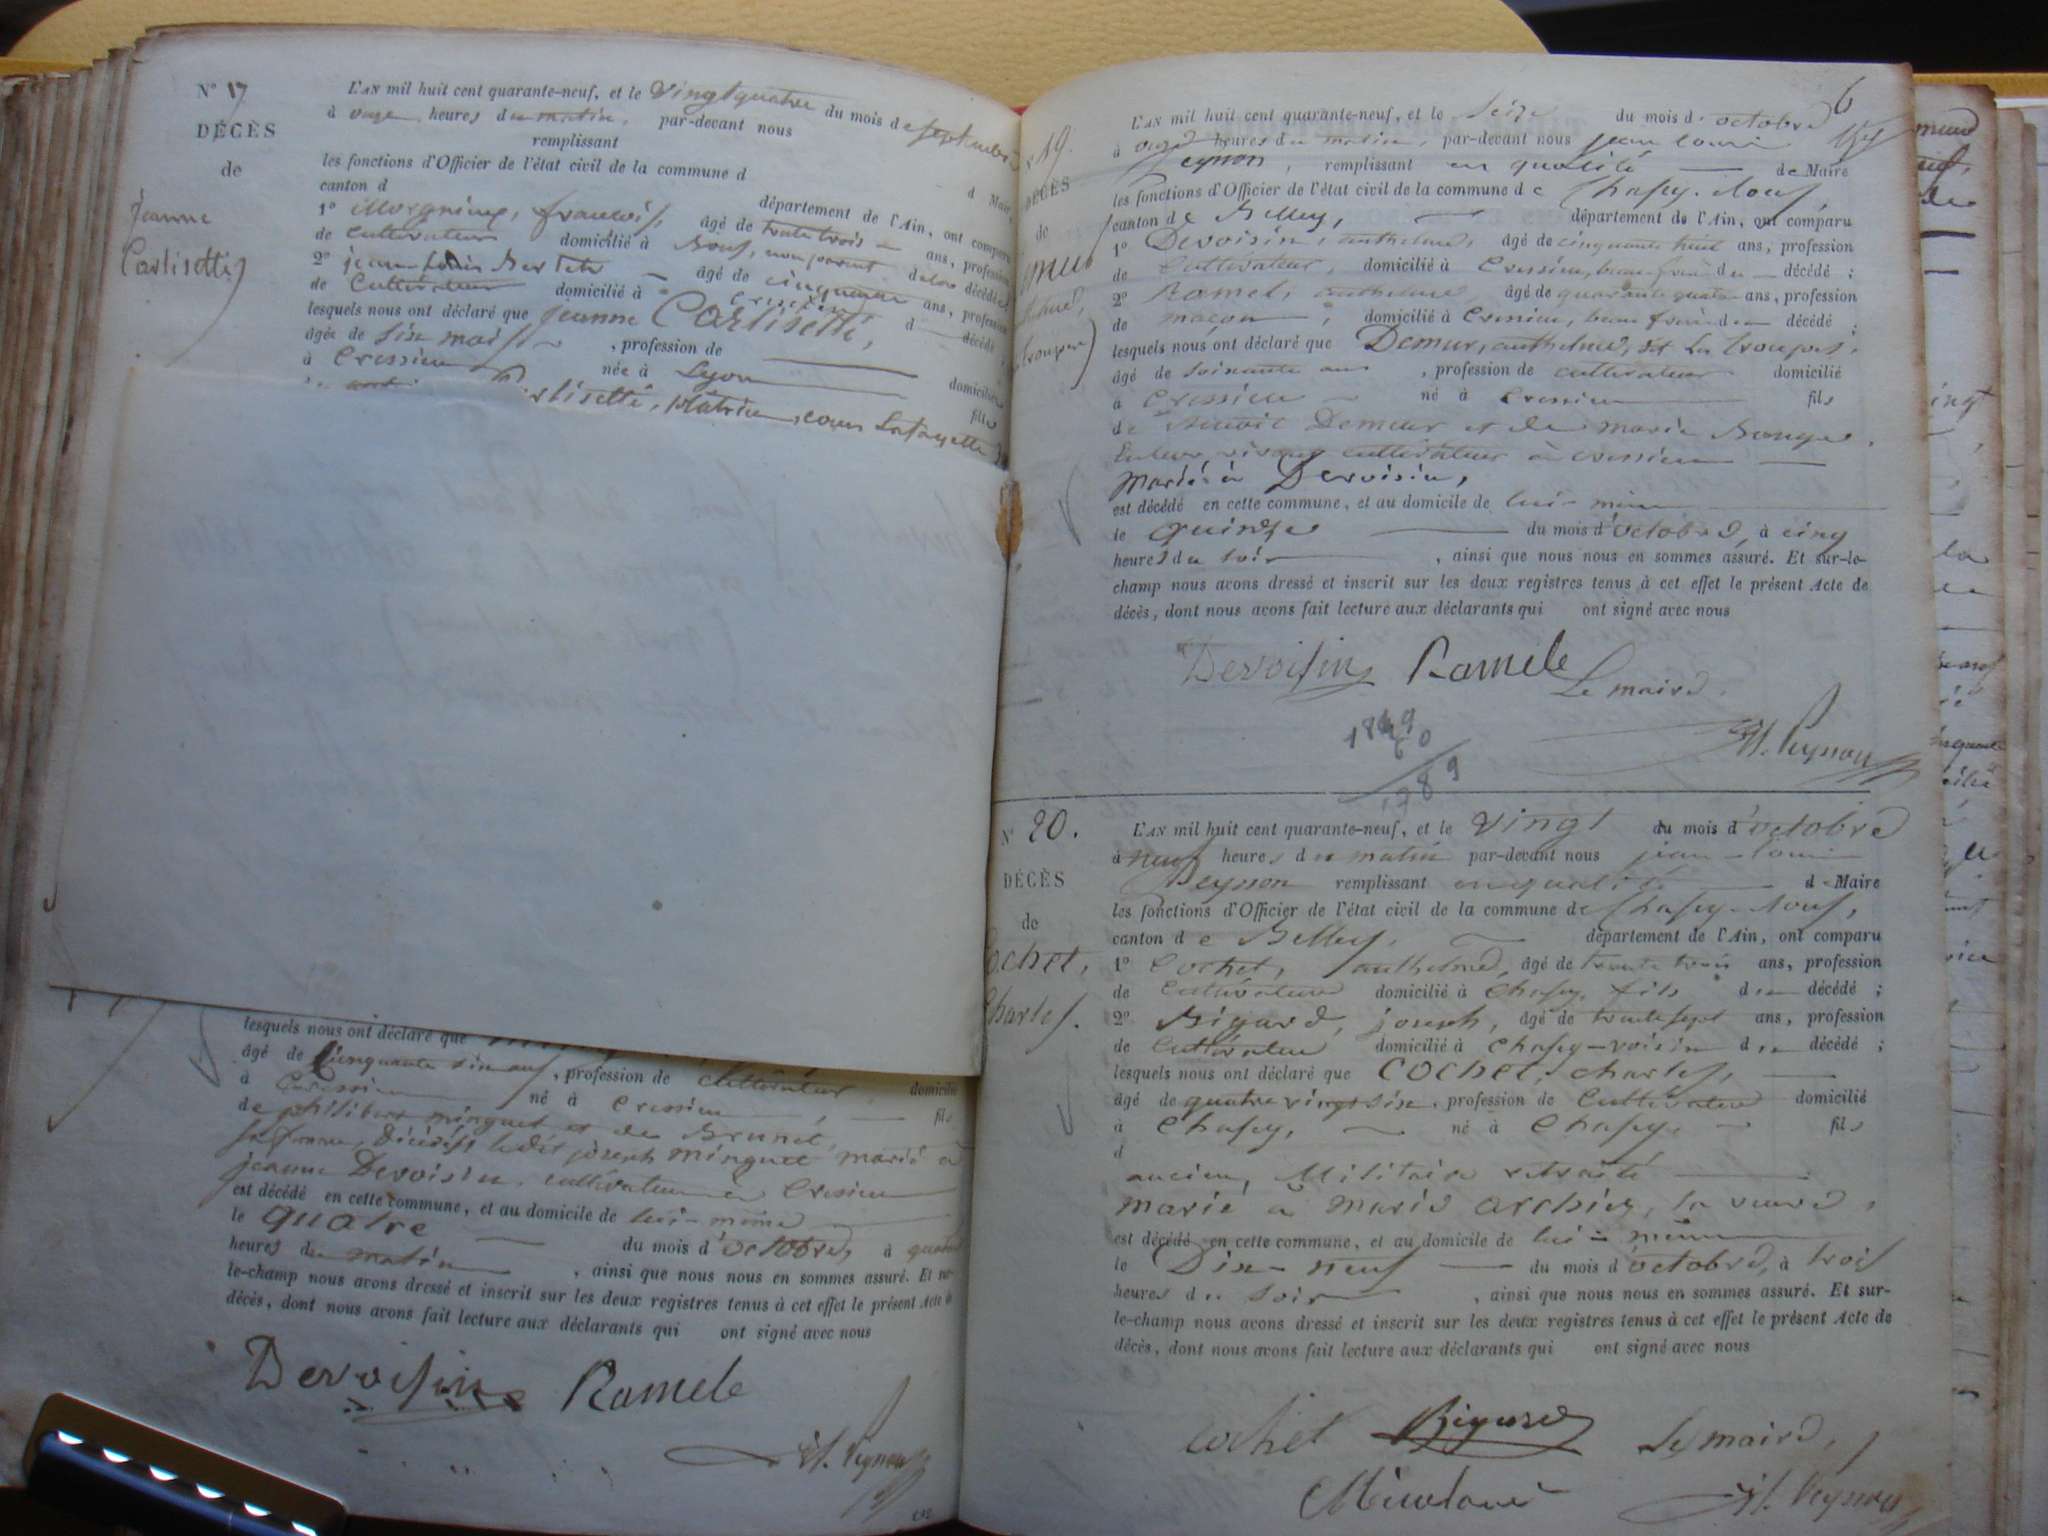 N° 17
DÉCÈS
de
Jeanne
Carlisetti
L'AN mil huit cent quarante-neuf, et le vingt quatre du mois de septembre
à onze heures du matin, par-devant nous
remplissant d Maire
les fonctions d'Officier de l'état civil de la commune d
canton d département de l'Ain, ont comparu
1° françois, âgé de trente trois ans, profession
de cultivateur domicilié à non parent de la décédée
2° jean Louis âgé de cinquante ans, profession
de Cultivateur domicilié à Cressieu d décédé
lesquels nous ont déclaré que jeanne Carlisetti,
âgée de six mois , profession de domiciliée
à Cressieu née à Lyon fille
Carlisetti, plâtrier, cours Lafayette
lesquels nous ont déclaré que
âgé de Cinquante six ans, profession de cultivateur domicilié
à Cressieu né à Cressieu fils
de philibert minguet et de Brunet,
sa femme, décédés, ledit joseph minguet marié à
jeanne Devoisin, cultivateur à Cressieu
est décédé en cette commune, et au domicile de lui-même
le quatre du mois d'octobre, à quatre
heures du matin , ainsi que nous nous en sommes assuré. Et sur-
le-champ nous avons dressé et inscrit sur les deux registres tenus à cet effet le présent Acte de
décès, dont nous avons fait lecture aux déclarants qui ont signé avec nous
Dervoisin Ramele
Peynon
6
19.
DÉCÈS
de
L'AN mil huit cent quarante-neuf, et le Seize du mois d'octobre
à onze heures du matin, par-devant nous jean louis
Peynon, remplissant en qualité de Maire
les fonctions d'Officier de l'état civil de la commune de Chasey-Bons,
canton de Belley, département de l'Ain, ont comparu
1° Devoisin, anthelme, âgé de cinquante huit ans, profession
de Cultivateur, domicilié à Cressieu, beau frère du décédé ;
2° Ramel, anthelme, âgé de quarante quatre ans, profession
de maçon, domicilié à Cressieu, beau frère du décédé ;
lesquels nous ont déclaré que Demur, anthelme, dit La trouper,
âgé de soixante ans , profession de cultivateur domicilié
à Cressieu né à Cressieu fils
de Benoit Demeur et de marie
vivant cultivateur à Cressieu
marié à Dervoisin,
est décédé en cette commune, et au domicile de lui-même
le quinze du mois d'octobre, à cinq
heures du soir , ainsi que nous nous en sommes assuré. Et sur-le-
champ nous avons dressé et inscrit sur les deux registres tenus à cet effet le présent Acte de
décès, dont nous avons fait lecture aux déclarants qui ont signé avec nous
Dervoisin Ramele
Le maire.
Peynon
1849
60
1789
N° 20.
DÉCÈS
de
Cochet,
Charles.
L'AN mil huit cent quarante-neuf, et le vingt du mois d'octobre
à neuf heures du matin par-devant nous jean-louis
Peynon remplissant en qualité de Maire
les fonctions d'Officier de l'état civil de la commune de Chasey-Bons,
canton de Belley, département de l'Ain, ont comparu
1° Cochet, anthelme, âgé de trente trois ans, profession
de Cultivateur domicilié à Chasey, fils du décédé ;
2° Bigard, joseph, âgé de trente sept ans, profession
de Cultivateur domicilié à Chasey-voisin du décédé ;
lesquels nous ont déclaré que Cochet, charles,
âgé de quatre vingt six, profession de Cultivateur domicilié
à Chasey, né à Chasey, fils
d
ancien Militaire retraité
marié à marie archier, sa veuve,
est décédé en cette commune, et au domicile de lui-même
le Dix-neuf du mois d'octobre, à trois
heures du soir , ainsi que nous nous en sommes assuré. Et sur-
le-champ nous avons dressé et inscrit sur les deux registres tenus à cet effet le présent Acte de
décès, dont nous avons fait lecture aux déclarants qui ont signé avec nous
cochet Bigard Le maire,
Peynon